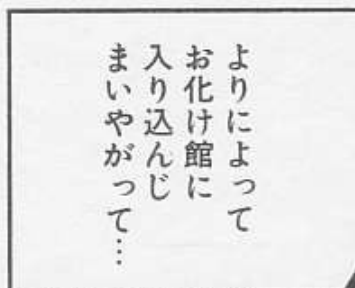 よりによって
お化け館に
入り込んじ
まいやがって…